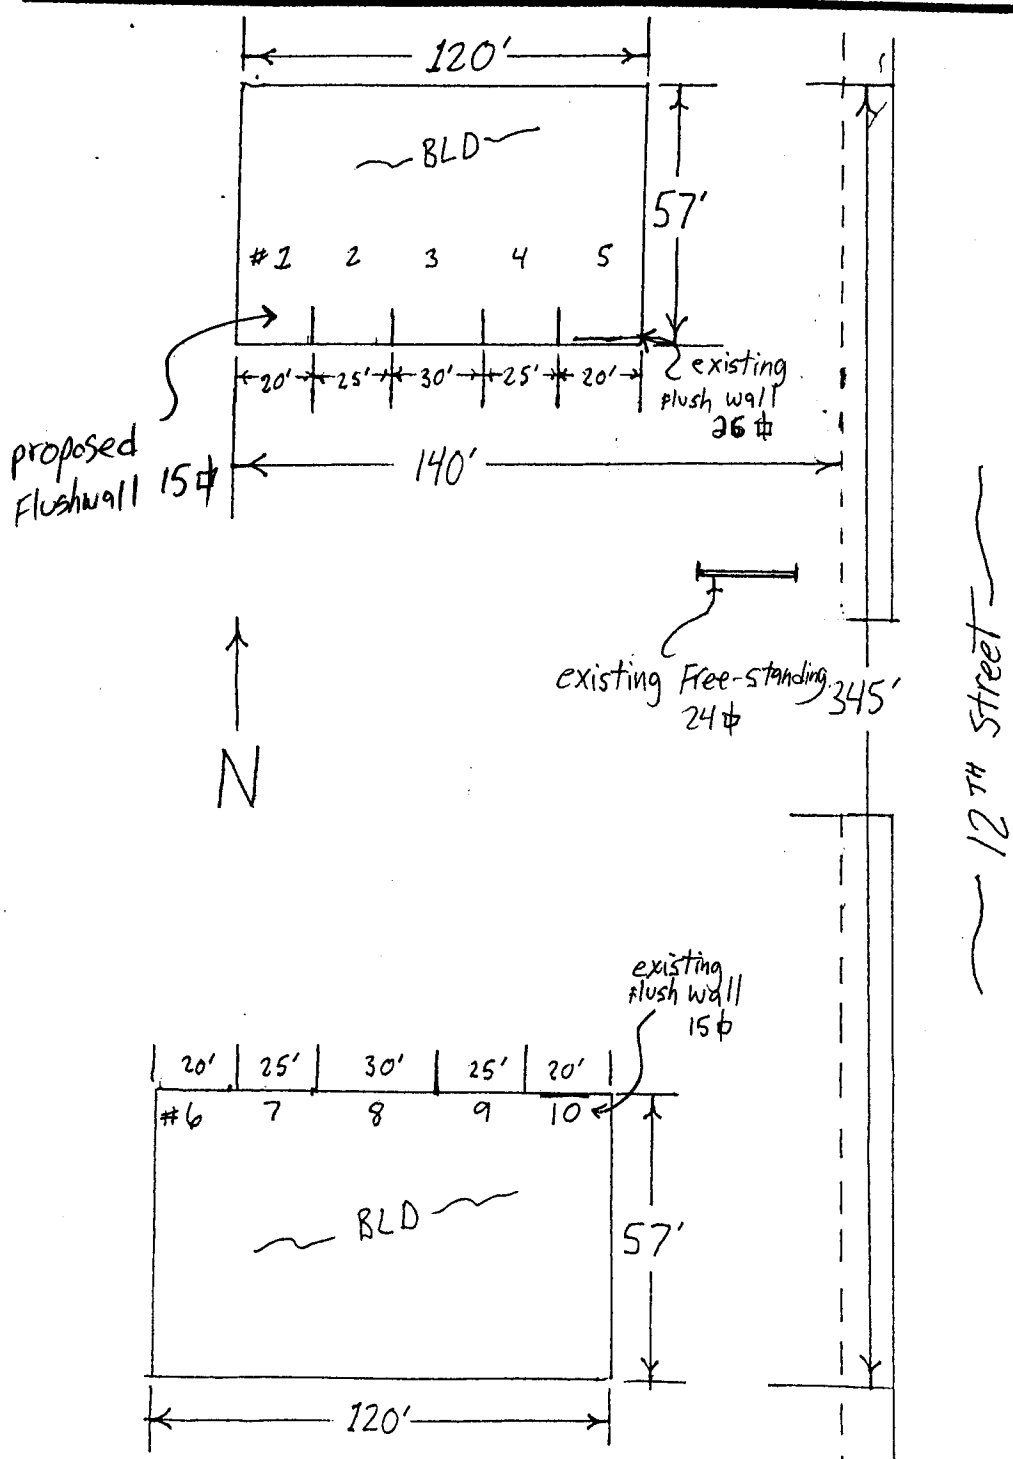 120'
BLD
57'
#1 2 3 4 5
20' 25' 30' 25' 20'
existing
flush wall
26 ⌷
proposed
Flushwall 15 ⌷
140'
existing Free-standing
24 ⌷
345'
N
12TH Street
existing
flush wall
15 ⌷
20' 25' 30' 25' 20'
#6 7 8 9 10
BLD
57'
120'